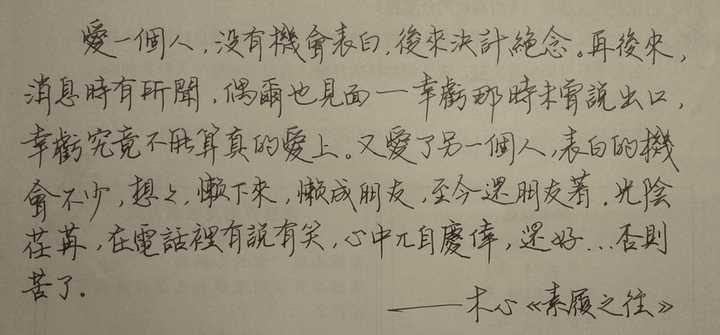 愛一個人，没有機會表白，後來決計絕念。再後來，
消息時有所聞，偶爾也見面——幸虧那時未曾說出口，
幸虧究竟不能算真的愛上。又愛了另一個人，表白的機
會不少，想想，懶下來，懶成朋友，至今還朋友著。光陰
荏苒，在電話裡有說有笑，心中兀自慶倖，還好…否則
苦了。
——木心《素履之往》